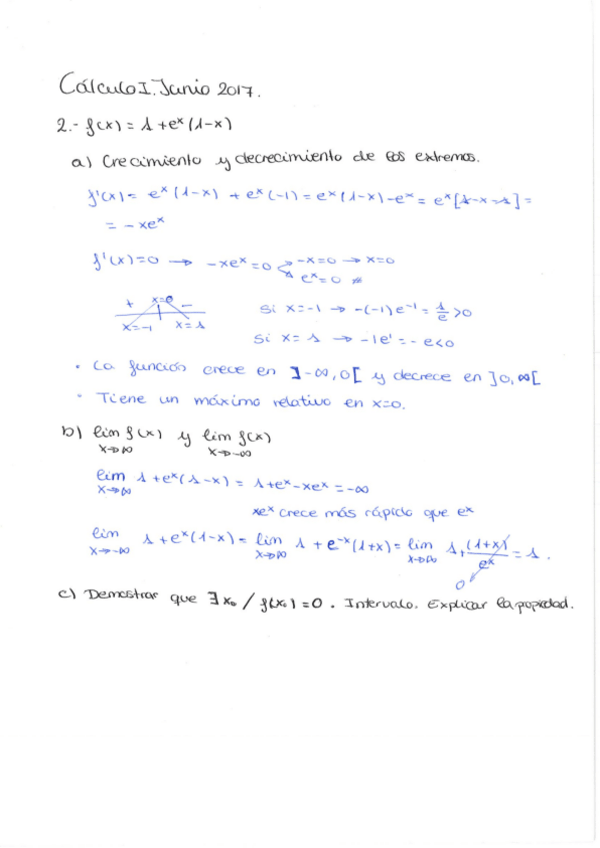 Cálculo I. Junio 2017.
2.- f(x) = 1 + eˣ(1-x)
a) Crecimiento y decrecimiento de los extremos.
f'(x) = eˣ(1-x) + eˣ(-1) = eˣ(1-x) - eˣ = eˣ[1-x-1] =
= -xeˣ
f'(x)=0 → -xeˣ=0 -x=0 → x=0
eˣ=0 ∄
+ x=0 -
x=-1 x=1
si x=-1 → -(-1)e⁻¹ = 1/e > 0
si x=1 → -1e¹ = -e<0
· La función crece en ]-∞,0[ y decrece en ]0,∞[
· Tiene un máximo relativo en x=0.
b) lim f(x) y lim f(x)
x→∞ x→-∞
lim 1 + eˣ(1-x) = 1+eˣ-xeˣ = -∞
x→∞
xeˣ crece más rápido que eˣ
lim 1 + eˣ(1-x) = lim 1 + e⁻ˣ(1+x) = lim 1 + (1+x)/eˣ = 1.
x→-∞ x→∞ x→∞ 0
c) Demostrar que ∃x₀ / f(x₀) = 0. Intervalo. Explicar la propiedad.